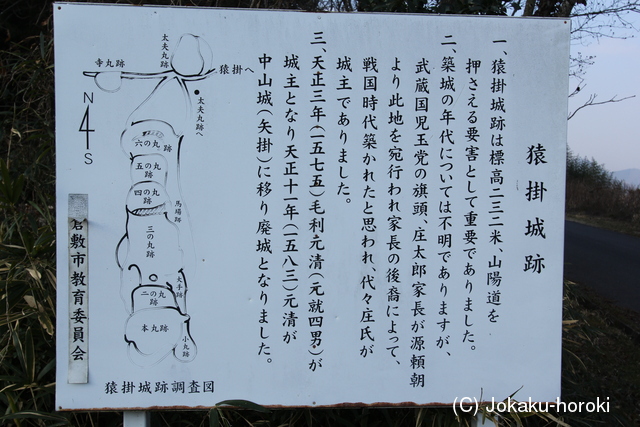 猿掛城跡
一、猿掛城跡は標高二三二米、山陽道を
押さえる要害として重要でありました。
二、築城の年代については不明でありますが、
武蔵国児玉党の旗頭、庄太郎家長が源頼朝
より此地を宛行われ家長の後裔によって、
戦国時代築かれたと思われ、代々庄氏が
城主でありました。
三、天正三年(一五七五)毛利元清(元就四男)が
城主となり天正十一年(一五八三)元清が
中山城(矢掛)に移り廃城となりました。
太夫丸跡
寺丸跡
猿掛へ
太夫丸跡へ
N
S
六の丸跡
五の丸跡
四の丸跡
馬場跡
三の丸跡
大手跡
二の丸跡
本丸跡
小丸跡
猿掛城跡調査図
倉敷市教育委員会
(C) Jokaku-horoki